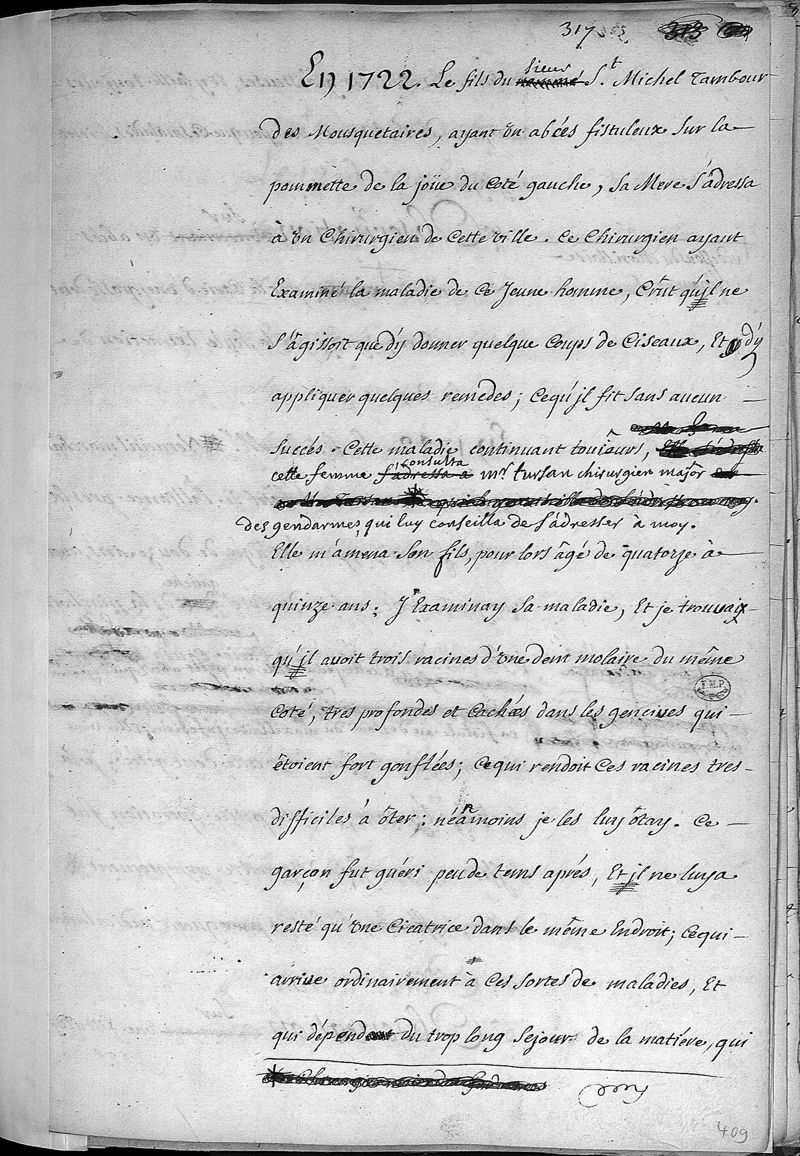 317 313
En 1722. Le fils du sieur St. Michel Tambour
des Mousquetaires, ayant un abcés fistuleux sur la
pommette de la joüe du coté gauche, sa Mere s'adressa
à un Chirurgien de cette ville. Ce Chirurgien ayant
Examiné la maladie de ce Jeune homme, Crût qu'jl ne
s'âgissoit que d'y donner quelque coups de Ciseaux, Et d'y
appliquer quelques remedes; cequ'jl fit sans aucun
succés. Cette maladie continuant toujours,
cette femme s'adressa a consulta mr. tursan chirurgien major
des gendarmes, qui luy conseilla de s'adresser à moy.
Elle m'amena son fils, pour lors âgé de quatorze à
quinze ans; J'Examinay sa maladie, Et je trouvay
qu'jl avoit trois racines d'une dent molaire du même
coté, tres profondes et cachées dans les gencives qui
étoient fort gonflées; cequi rendoit ces racines tres
difficiles à ôter: néanmoins je les luy ôtay. Ce
garçon fut guéri peu de tems aprés, Et jl ne luy a
resté qu'une Cicatrice dans le même Endroit; cequi
arrive ordinairement à ces sortes de maladies, Et
qui dépend du trop long sejour de la matiére, qui
F.M.P.
409